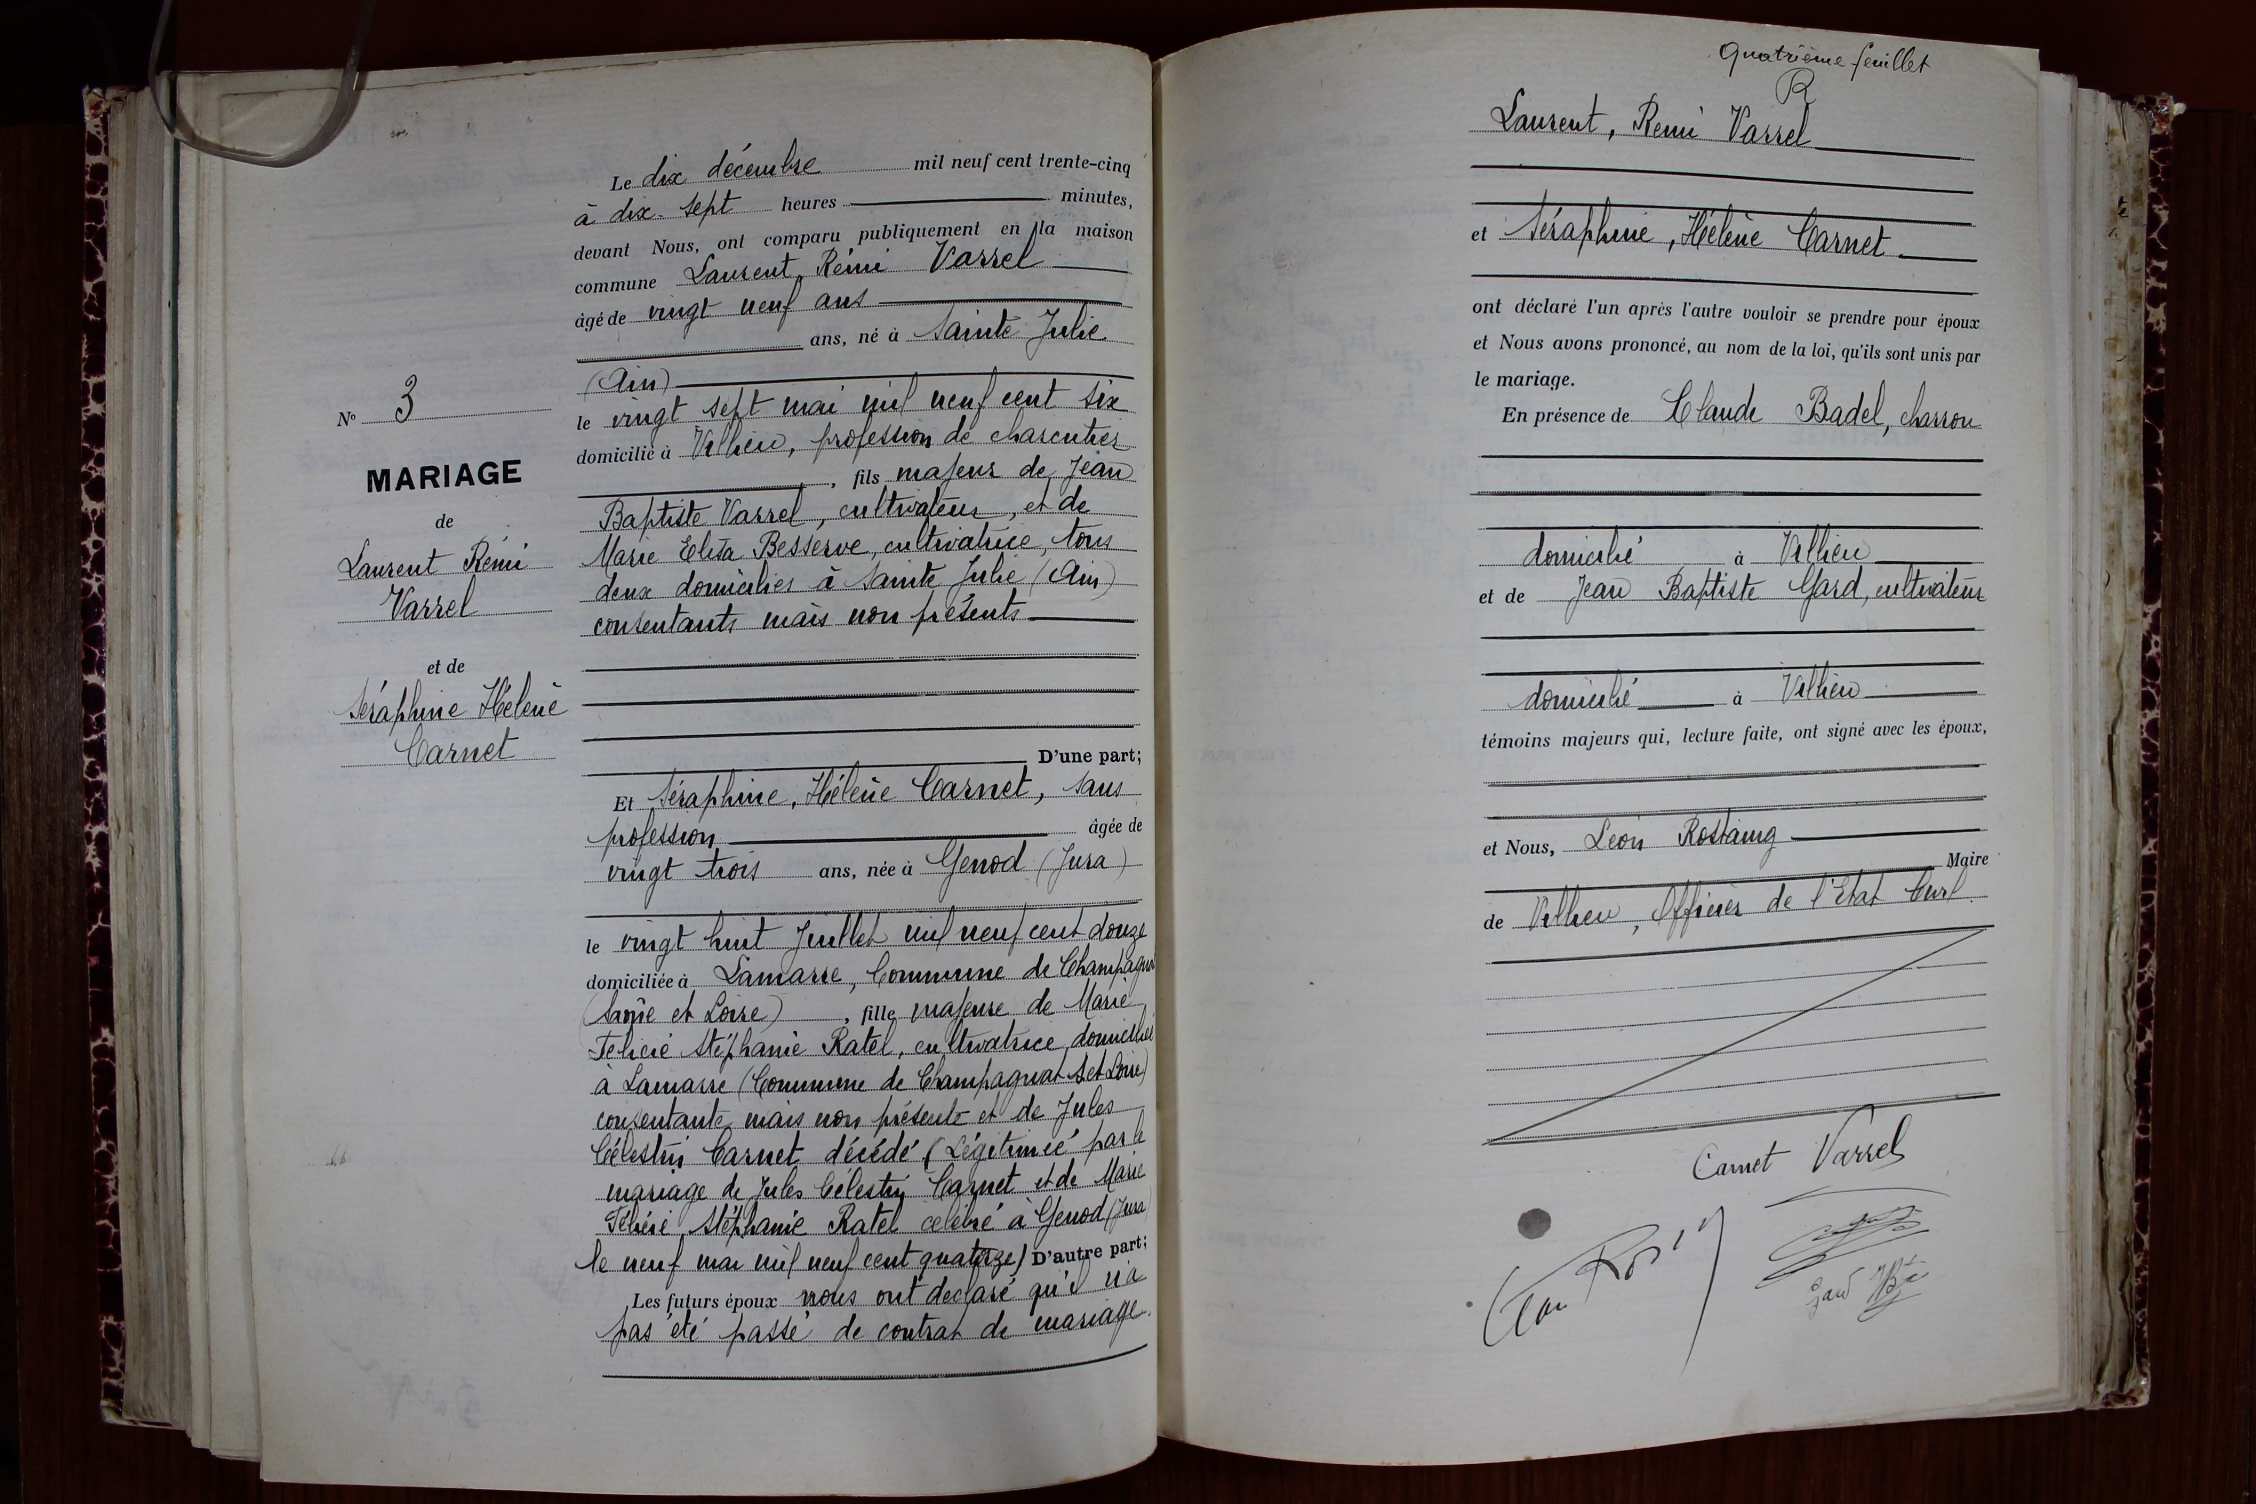 Le dix décembre mil neuf cent trente-cinq
à dix-sept heures minutes,
devant Nous, ont comparu publiquement en la maison
commune Laurent, Rémi Varrel
âgé de vingt neuf ans
ans, né à Sainte Julie
(Ain)
le vingt sept mai mil neuf cent six
domicilié à Villieu, profession de charcutier
, fils majeur de Jean
Baptiste Varrel, cultivateur, et de
Marie Elisa Besserve, cultivatrice, tous
deux domiciliés à Sainte Julie (Ain)
consentants mais non présents
D'une part;
Et Séraphine, Hélène Carnet, sans
profession âgée de
vingt trois ans, née à Genod (Jura)
le vingt huit Juillet mil neuf cent douze
domiciliée à Lamarre, Commune de Champagnat
(Saône et Loire), fille majeure de Marie
Félicie Stéphanie Ratel, cultivatrice, domiciliée
à Lamarre (Commune de Champagnat S et Loire)
consentante mais non présente et de Jules
Célestin Carnet décédé (Légitimée par le
mariage de Jules Célestin Carnet et de Marie
Félicie Stéphanie Ratel célébré à Genod (Jura)
le neuf mai mil neuf cent quatorze) D'autre part;
Les futurs époux nous ont déclaré qu'il n'a
pas été passé de contrat de mariage.
N° 3
MARIAGE
de
Laurent Rémi
Varrel
et de
Séraphine Hélène
Carnet
Quatrième feuillet
R
Laurent, Remi Varrel
et Séraphine, Hélène Carnet
ont déclaré l'un après l'autre vouloir se prendre pour époux
et Nous avons prononcé, au nom de la loi, qu'ils sont unis par
le mariage.
En présence de Claude Badel, charron
domicilié à Villieu
et de Jean Baptiste Gard, cultivateur
domicilié à Villieu
témoins majeurs qui, lecture faite, ont signé avec les époux,
et Nous, Léon Rostaing
Maire
de Villieu, Officier de l'Etat Civil
Carnet Varrel